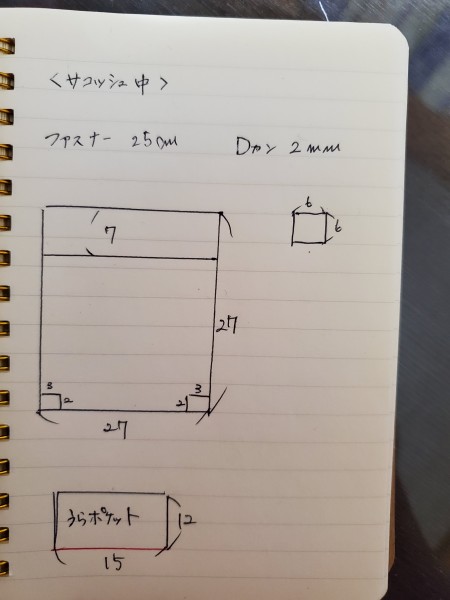 <サコッシュ中>
ファスナー 25cm Dカン 2mm
6
7 6
27
3 3
2 2
27
うらポケット 12
15